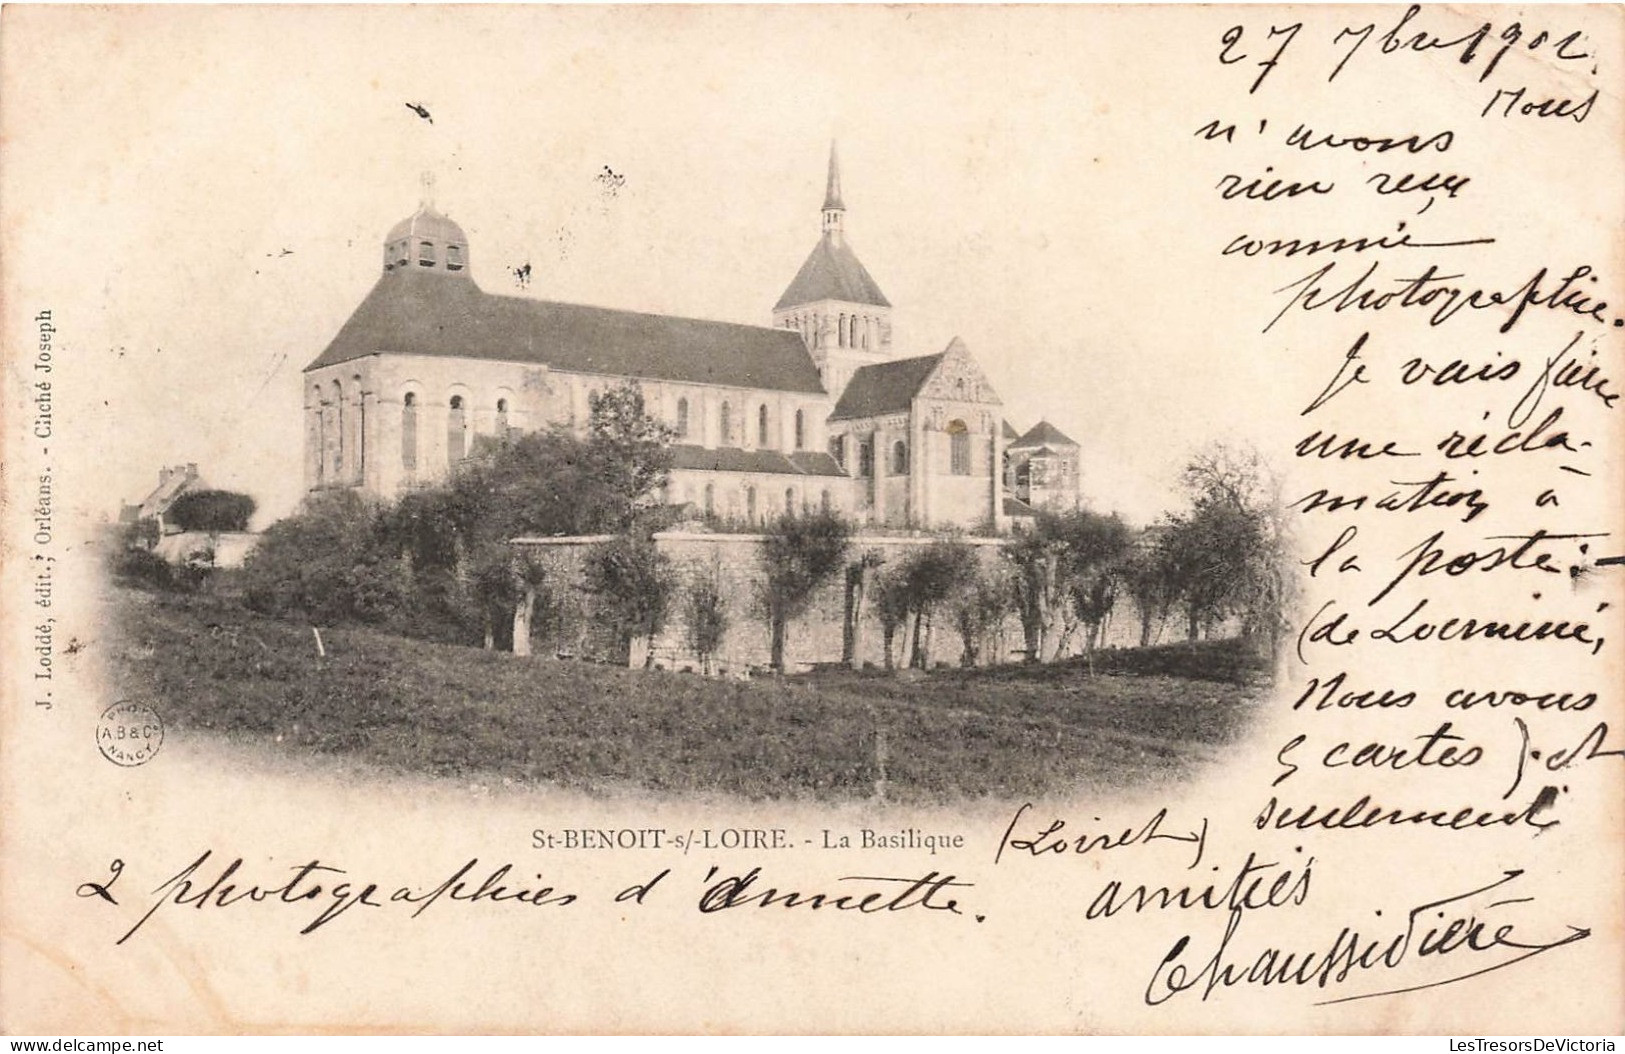 27 7bre 1902.
Nous
n'avons
rien reçu
comme
photographie.
Je vais faire
une récla-
mation à
la poste :-
(de Locminé,
Nous avons
5 cartes ). et
seulement
2 photographies d'Annette.
amitiés
Chaussidière
St-BENOIT-s/-LOIRE. - La Basilique
(Loiret)
J. Loddé, édit., Orléans. - Cliché Joseph
PHOT.
A.B & Cie
NANCY
delcampe.net
LesTresorsDeVictoria